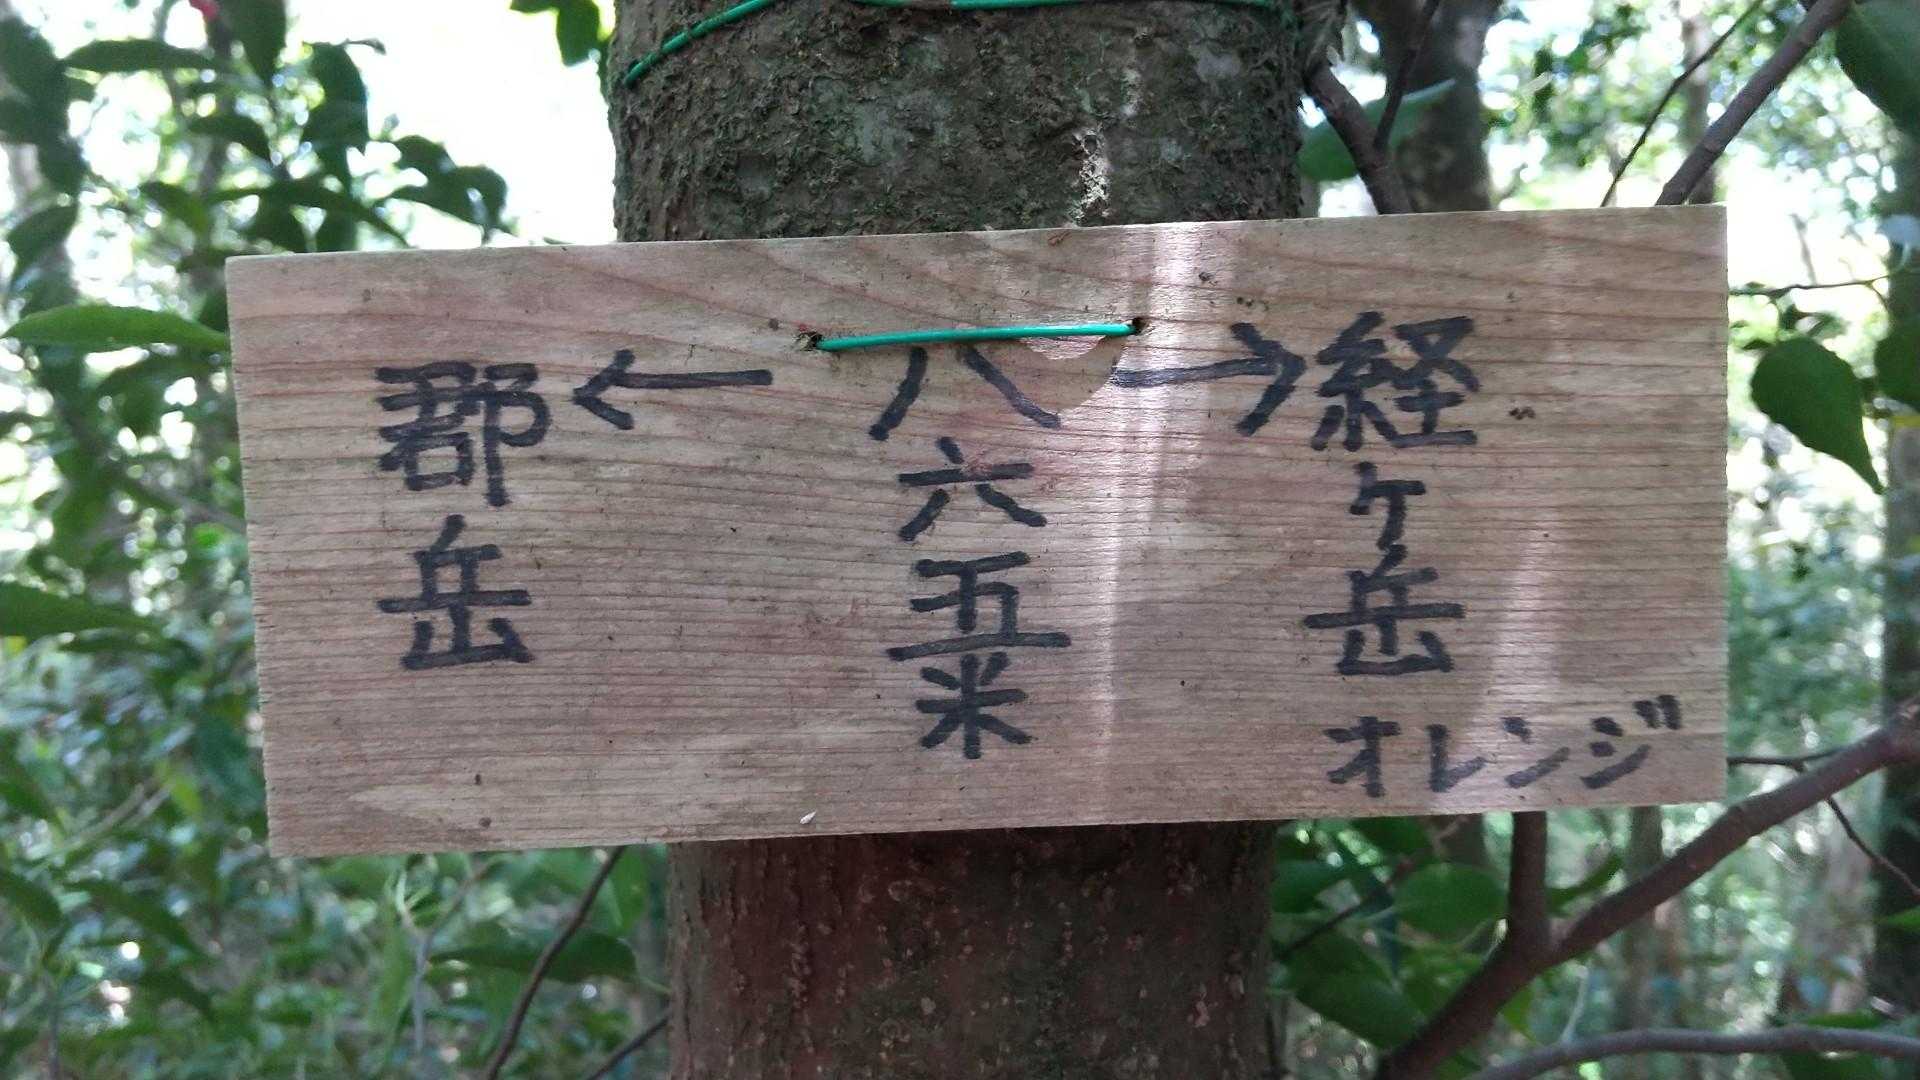 郡岳
←
八六五米
→
経ヶ岳
オレンジ